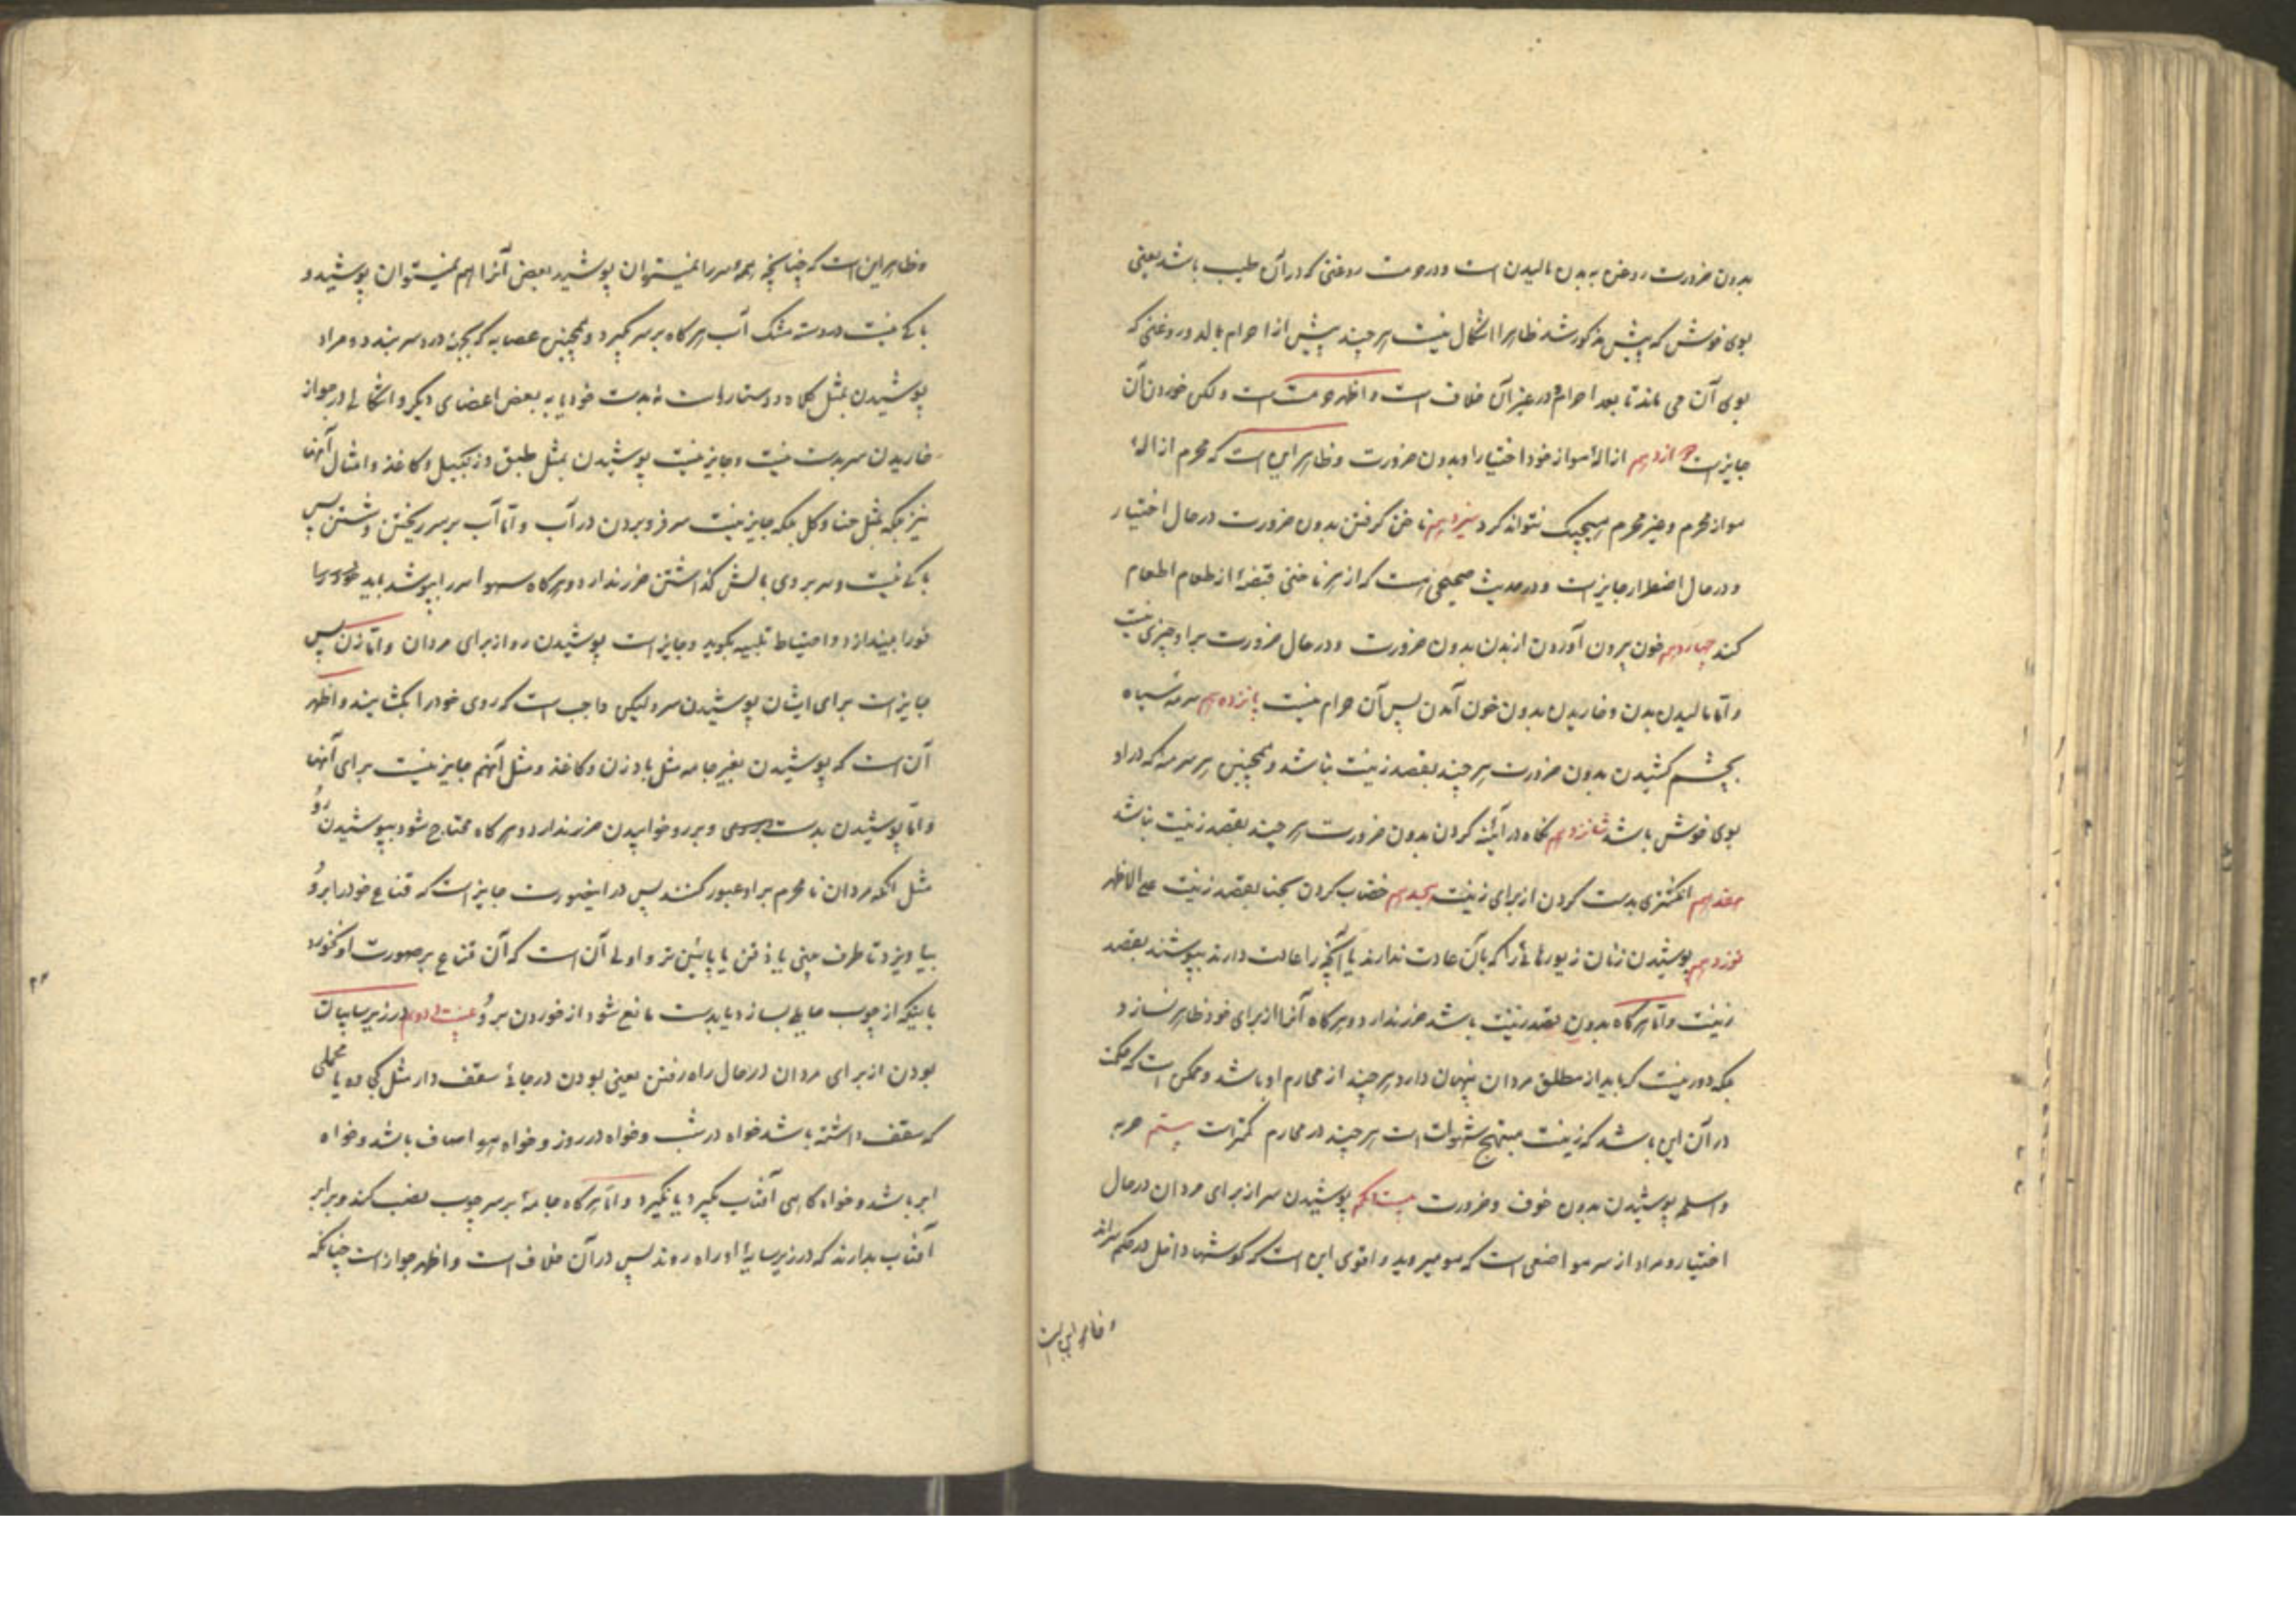 بدون ضرورت روغن به بدن مالیدن است و در حرمت روغنی که در آن طیب باشد یعنی
بوی خوش که پیش مذکور شد ظاهرا اشکال نیست هر چند پیش از احرام بمالد و روغنی که
بوی آن می ماند تا بعد احرام و در غیر آن خلاف است و اظهر حرمت است و لکن خوردن آن
جایز است دوازدهم ازالهٔ مو از خود اختیارا و بدون ضرورت و ظاهر این است که محرم ازالهٔ
مو از محرم و غیر محرم هیچیک نتواند کرد سیزدهم ناخن گرفتن بدون ضرورت در حال اختیار
و در حال اضطرار جایز است و در حدیث صحیحی است که از هر ناخنی قبضهٔ از طعام اطعام
کند چهاردهم خون بیرون آوردن از بدن بدون ضرورت و در حال ضرورت بر او چیزی نیست
و اما مالیدن بدن و خاریدن بدون خون آمدن پس آن حرام نیست پانزدهم سرمهٔ سیاه
بچشم کشیدن بدون ضرورت هر چند بقصد زینت نباشد و همچنین هر سرمه که در او
بوی خوش باشد شانزدهم نگاه در آینه کردن بدون ضرورت هر چند بقصد زینت نباشد
هفدهم انگشتری بدست کردن از برای زینت هجدهم خضاب کردن بحنا بقصد زینت علی الاظهر
نوزدهم پوشیدن زنان زیورهائی را که بآن عادت ندارند یا آنچه را عادت دارند بپوشند بقصد
زینت و اما هرگاه بدون قصد زینت باشد ضرر ندارد و هرگاه آنرا از برای خود ظاهر نسازد
بلکه دور نیست که باید از مطلق مردان پنهان دارد هر چند از محارم او باشد و ممکن است که حکمت
در آن این باشد که زینت مهیج شهوات است هر چند در محارم کمتر است بیستم حربه
و اسلحه پوشیدن بدون خوف و ضرورت بیست و یکم پوشیدن سر از برای مردان در حال
اختیار و مراد از سر مواضعی است که مو میروید و اقوی این است که گوشها داخل در حکم سراند
و ظاهر این است
و ظاهر این است که چنانچه همهٔ سر را نمیتوان پوشید بعض آنرا هم نمیتوان پوشید و
باکی نیست در دسته مشک آب هرگاه بر سر گیرد و همچنین عصابه که بجهة درد سر بندد و مراد
پوشیدن بمثل کلاه و دستار است نه بدست خود یا به بعض اعضای دیگر و اشکالی در جواز
خاریدن سر بدست نیست و جایز نیست پوشیدن بمثل طبق و زنبیل و کاغذ و امثال آنها
نیز بلکه بمثل حنا و گل بلکه جایز نیست سر فرو بردن در آب و اما آب بر سر ریختن و شستن پس
باکی نیست و سر بر روی بالش گذاشتن ضرر ندارد و هرگاه سهوا سر را بپوشد باید
فورا بیندازد و احتیاطا تلبیه بگوید و جایز است پوشیدن رو از برای مردان و اما زن پس
جایز است برای ایشان پوشیدن سر و لیکن واجب است که روی خود را بگشایند و اظهر
آن است که پوشیدن بغیر جامه مثل بادزن و کاغذ و مثل آنهم جایز نیست برای آنها
و اما پوشیدن بدست و بر رو خوابیدن ضرر ندارد و هرگاه محتاج شود بپوشیدن رُو
مثل آنکه مردان نامحرم بر او عبور کنند پس در اینصورت جایز است که قناع خود را بر رُو
بیاویزد تا طرف بینی یا ذقن یا پائین تر و اولی آن است که آن قناع بر صورت او نخورد
باینکه از چوب حایلی بسازد یا بدست مانع شود از خوردن بر رُو بیست و دویم در زیر سایبان
بودن از برای مردان در حال راه رفتن یعنی بودن در جائی سقف دار مثل کجاوه یا محملی
که سقف داشته باشد خواه در شب و خواه در روز و خواه هوا صاف باشد و خواه
ابر باشد و خواه گاهی آفتاب بگیرد یا نگیرد و اما هرگاه جامهٔ بر سر چوب نصب کند و برابر
آفتاب بدارند که در زیر سایهٔ او راه روند پس در آن خلاف است و اظهر جواز است چنانکه